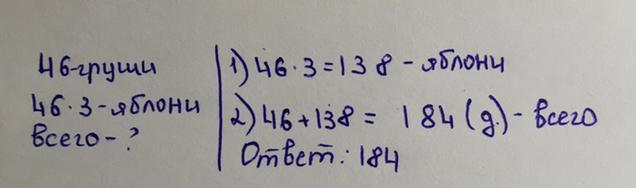 46-груши
46·3-яблони
всего-?
1) 46·3=138-яблони
2) 46+138= 184(д.)-всего
Ответ: 184